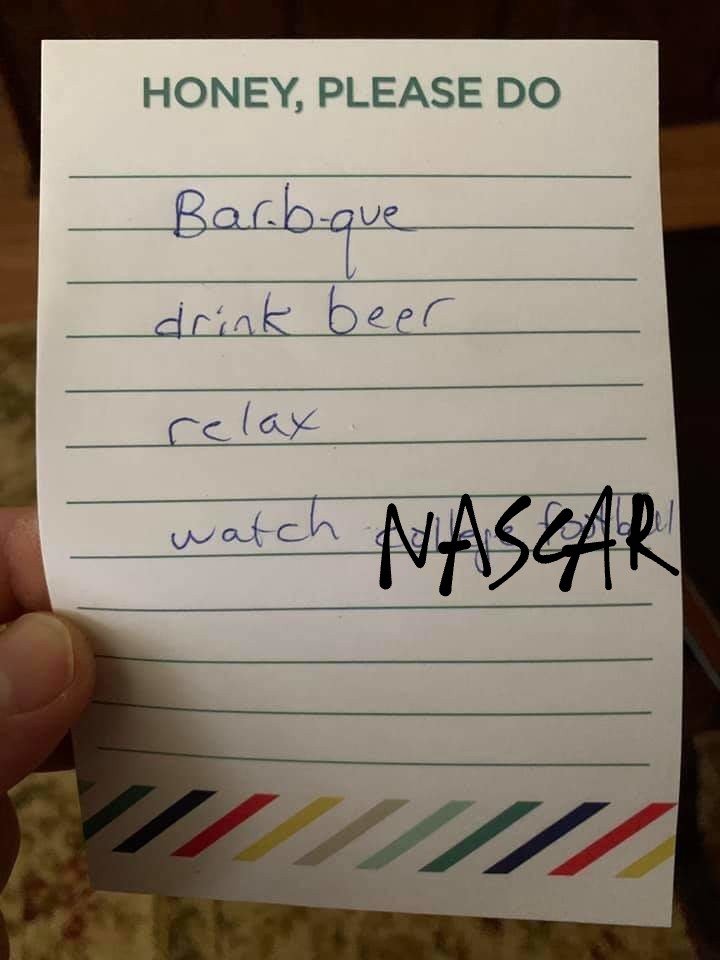 HONEY, PLEASE DO
Bar-b-que
drink beer
relax
watch college football NASCAR